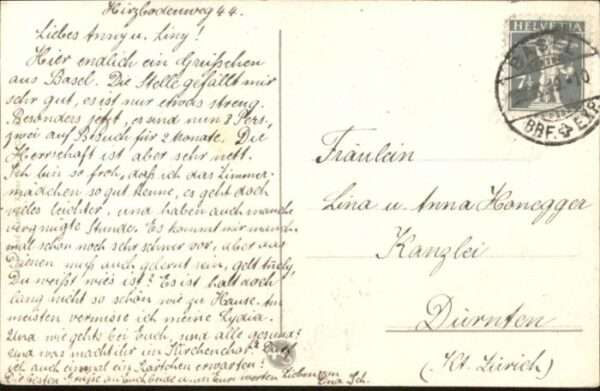 Hirzbodenweg 44.
Liebes Anny u. Liny!
Hier endlich ein Grüsschen
aus Basel. Die Stelle gefällt mir
sehr gut, es ist nur etwas streng.
Besonders jetzt, es sind nun 8 Pers.,
zwei auf Besuch für 2 Monate. Die
Herrschaft ist aber sehr nett.
Ich bin so froh, daß ich das Zimmer-
mädchen so gut kenne, es geht doch
vieles leichter, und haben auch manche
vergnügte Stunde. Es kommt mir manch-
mal schon noch sehr schwer vor, aber das
Dienen muß auch gelernt sein, gelt
Du weißt wies ist? Es ist halt doch
lang nicht so schön wie zu Hause. Am
meisten vermisse ich meine Lydia.
Und wie gehts bei Euch, sind alle gesund?
Und was macht ihr im Kirchenchor? Darf
ich auch einmal ein Kärtchen erwarten?
Die besten Grüße an Euch beide u. an Eure werten Lieben von
Lina Sch.
HELVETIA
7
BASEL
BRF. EXP.
Fräulein
Lina u. Anna Honegger
Kanzlei
Dürnten
(Kt. Zürich)